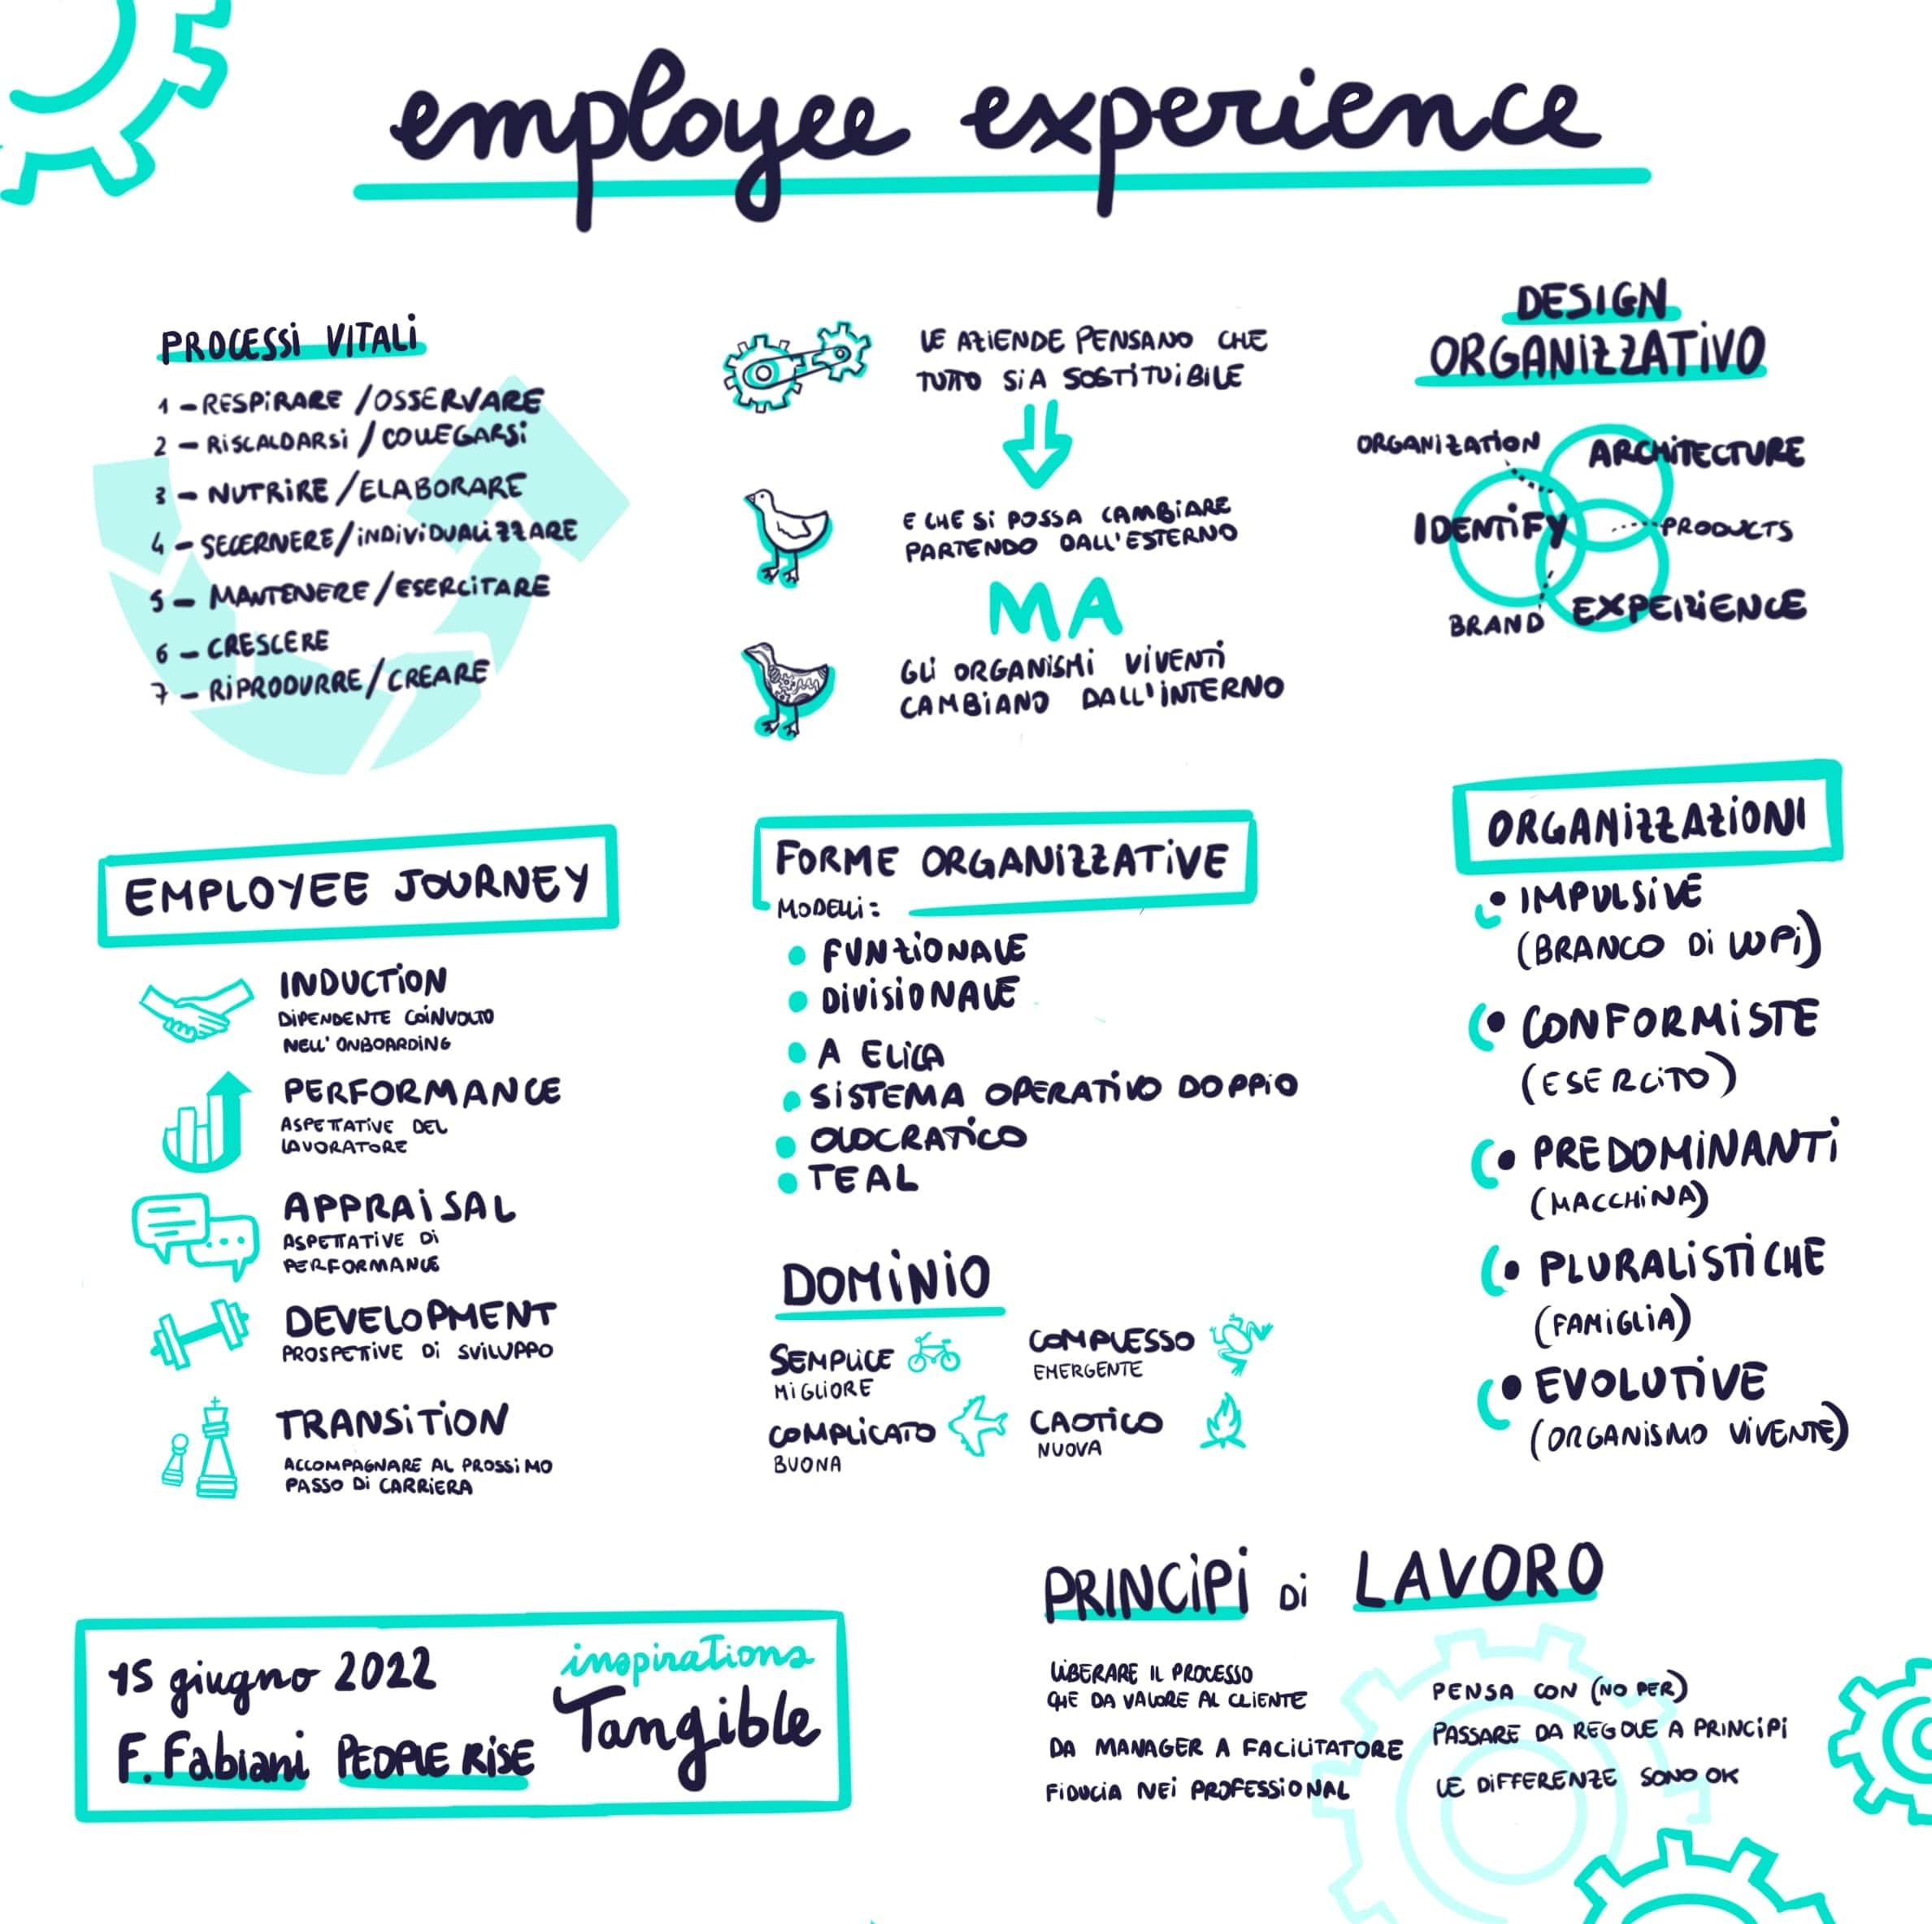 employee experience
PROCESSI VITALI
1 - RESPIRARE / OSSERVARE
2 - RISCALDARSI / COLLEGARSI
3 - NUTRIRE / ELABORARE
4 - SECERNERE / INDIVIDUALIZZARE
5 - MANTENERE / ESERCITARE
6 - CRESCERE
7 - RIPRODURRE / CREARE
LE AZIENDE PENSANO CHE
TUTTO SIA SOSTITUIBILE
E CHE SI POSSA CAMBIARE
PARTENDO DALL'ESTERNO
MA
GLI ORGANISMI VIVENTI
CAMBIANO DALL'INTERNO
DESIGN
ORGANIZZATIVO
ORGANIZATION
ARCHITECTURE
IDENTIFY
PRODUCTS
BRAND
EXPERIENCE
EMPLOYEE JOURNEY
INDUCTION
DIPENDENTE COINVOLTO
NELL'ONBOARDING
PERFORMANCE
ASPETTATIVE DEL
LAVORATORE
APPRAISAL
ASPETTATIVE DI
PERFORMANCE
DEVELOPMENT
PROSPETTIVE DI SVILUPPO
TRANSITION
ACCOMPAGNARE AL PROSSIMO
PASSO DI CARRIERA
FORME ORGANIZZATIVE
MODELLI:
• FUNZIONALE
• DIVISIONALE
• A ELICA
• SISTEMA OPERATIVO DOPPIO
• OLOCRATICO
• TEAL
DOMINIO
SEMPLICE
MIGLIORE
COMPLESSO
EMERGENTE
COMPLICATO
BUONA
CAOTICO
NUOVA
ORGANIZZAZIONI
• IMPULSIVE
(BRANCO DI LUPI)
• CONFORMISTE
(ESERCITO)
• PREDOMINANTI
(MACCHINA)
• PLURALISTICHE
(FAMIGLIA)
• EVOLUTIVE
(ORGANISMO VIVENTE)
PRINCIPI DI LAVORO
LIBERARE IL PROCESSO
CHE DA VALORE AL CLIENTE
DA MANAGER A FACILITATORE
FIDUCIA NEI PROFESSIONAL
PENSA CON (NO PER)
PASSARE DA REGOLE A PRINCIPI
LE DIFFERENZE SONO OK
15 giugno 2022
F. Fabiani PEOPLE RISE
inspirations
Tangible